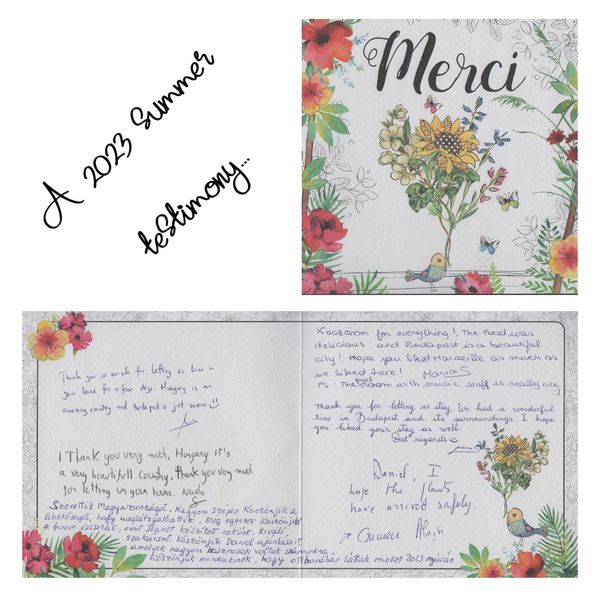 A 2023 Summer
testimony...
Merci
Thank you so much for letting us live in
your home for a few days. Hungary is an
amazing country and Budapest's just wow
I Thank you very mutch, Hungary it's
a very beautifull Country, thank you very much
for letting us your home. Nado
Szerettük Magyarországot. Nagyon szépen köszönjük a
lehetőséget, hogy meglátogathattuk. Még egyszer köszönjük
a finom vacsorát, amit készített nekünk. Kiváló
szakácsnő. Köszönjük Daniel ajánlásait,
amelyek nagyon hasznosak voltak számunkra.
Köszönjük mindenkinek, hogy otthonában láttak minket 2023 nyarán
Köszönöm for everything! The food was
delicious and Budapest is a beautiful
city! Hope you liked Marseille as much as
we liked here!
PS: The bedroom with music stuff is really nice;)
Thank you for letting us stay. We had a wonderful
time in Budapest and its surroundings. I hope
you liked your stay as well.
Best regards
Daniel, I
hope the plants
have arrived safely.